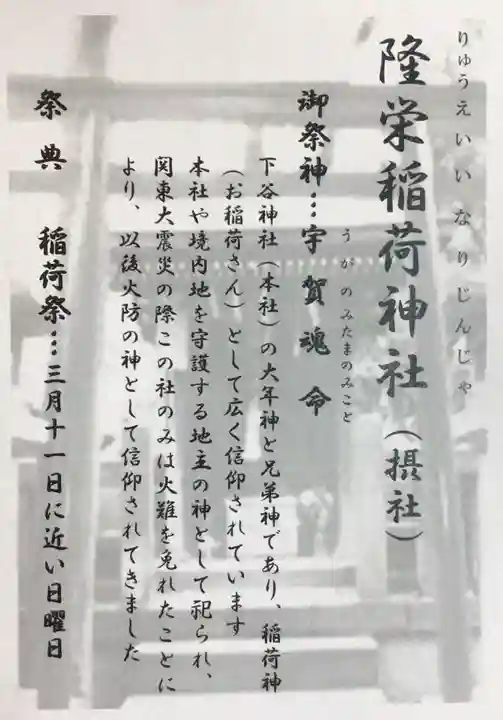 りゅうえいいなりじんじゃ
隆栄稲荷神社（摂社）
御祭神…宇賀魂命
うがのみたまのみこと
下谷神社（本社）の大年神と兄弟神であり、稲荷神
（お稲荷さん）として広く信仰されています
本社や境内地を守護する地主の神として祀られ、
関東大震災の際この社のみは火難を免れたことに
より、以後火防の神として信仰されてきました
祭典　稲荷祭…三月十一日に近い日曜日